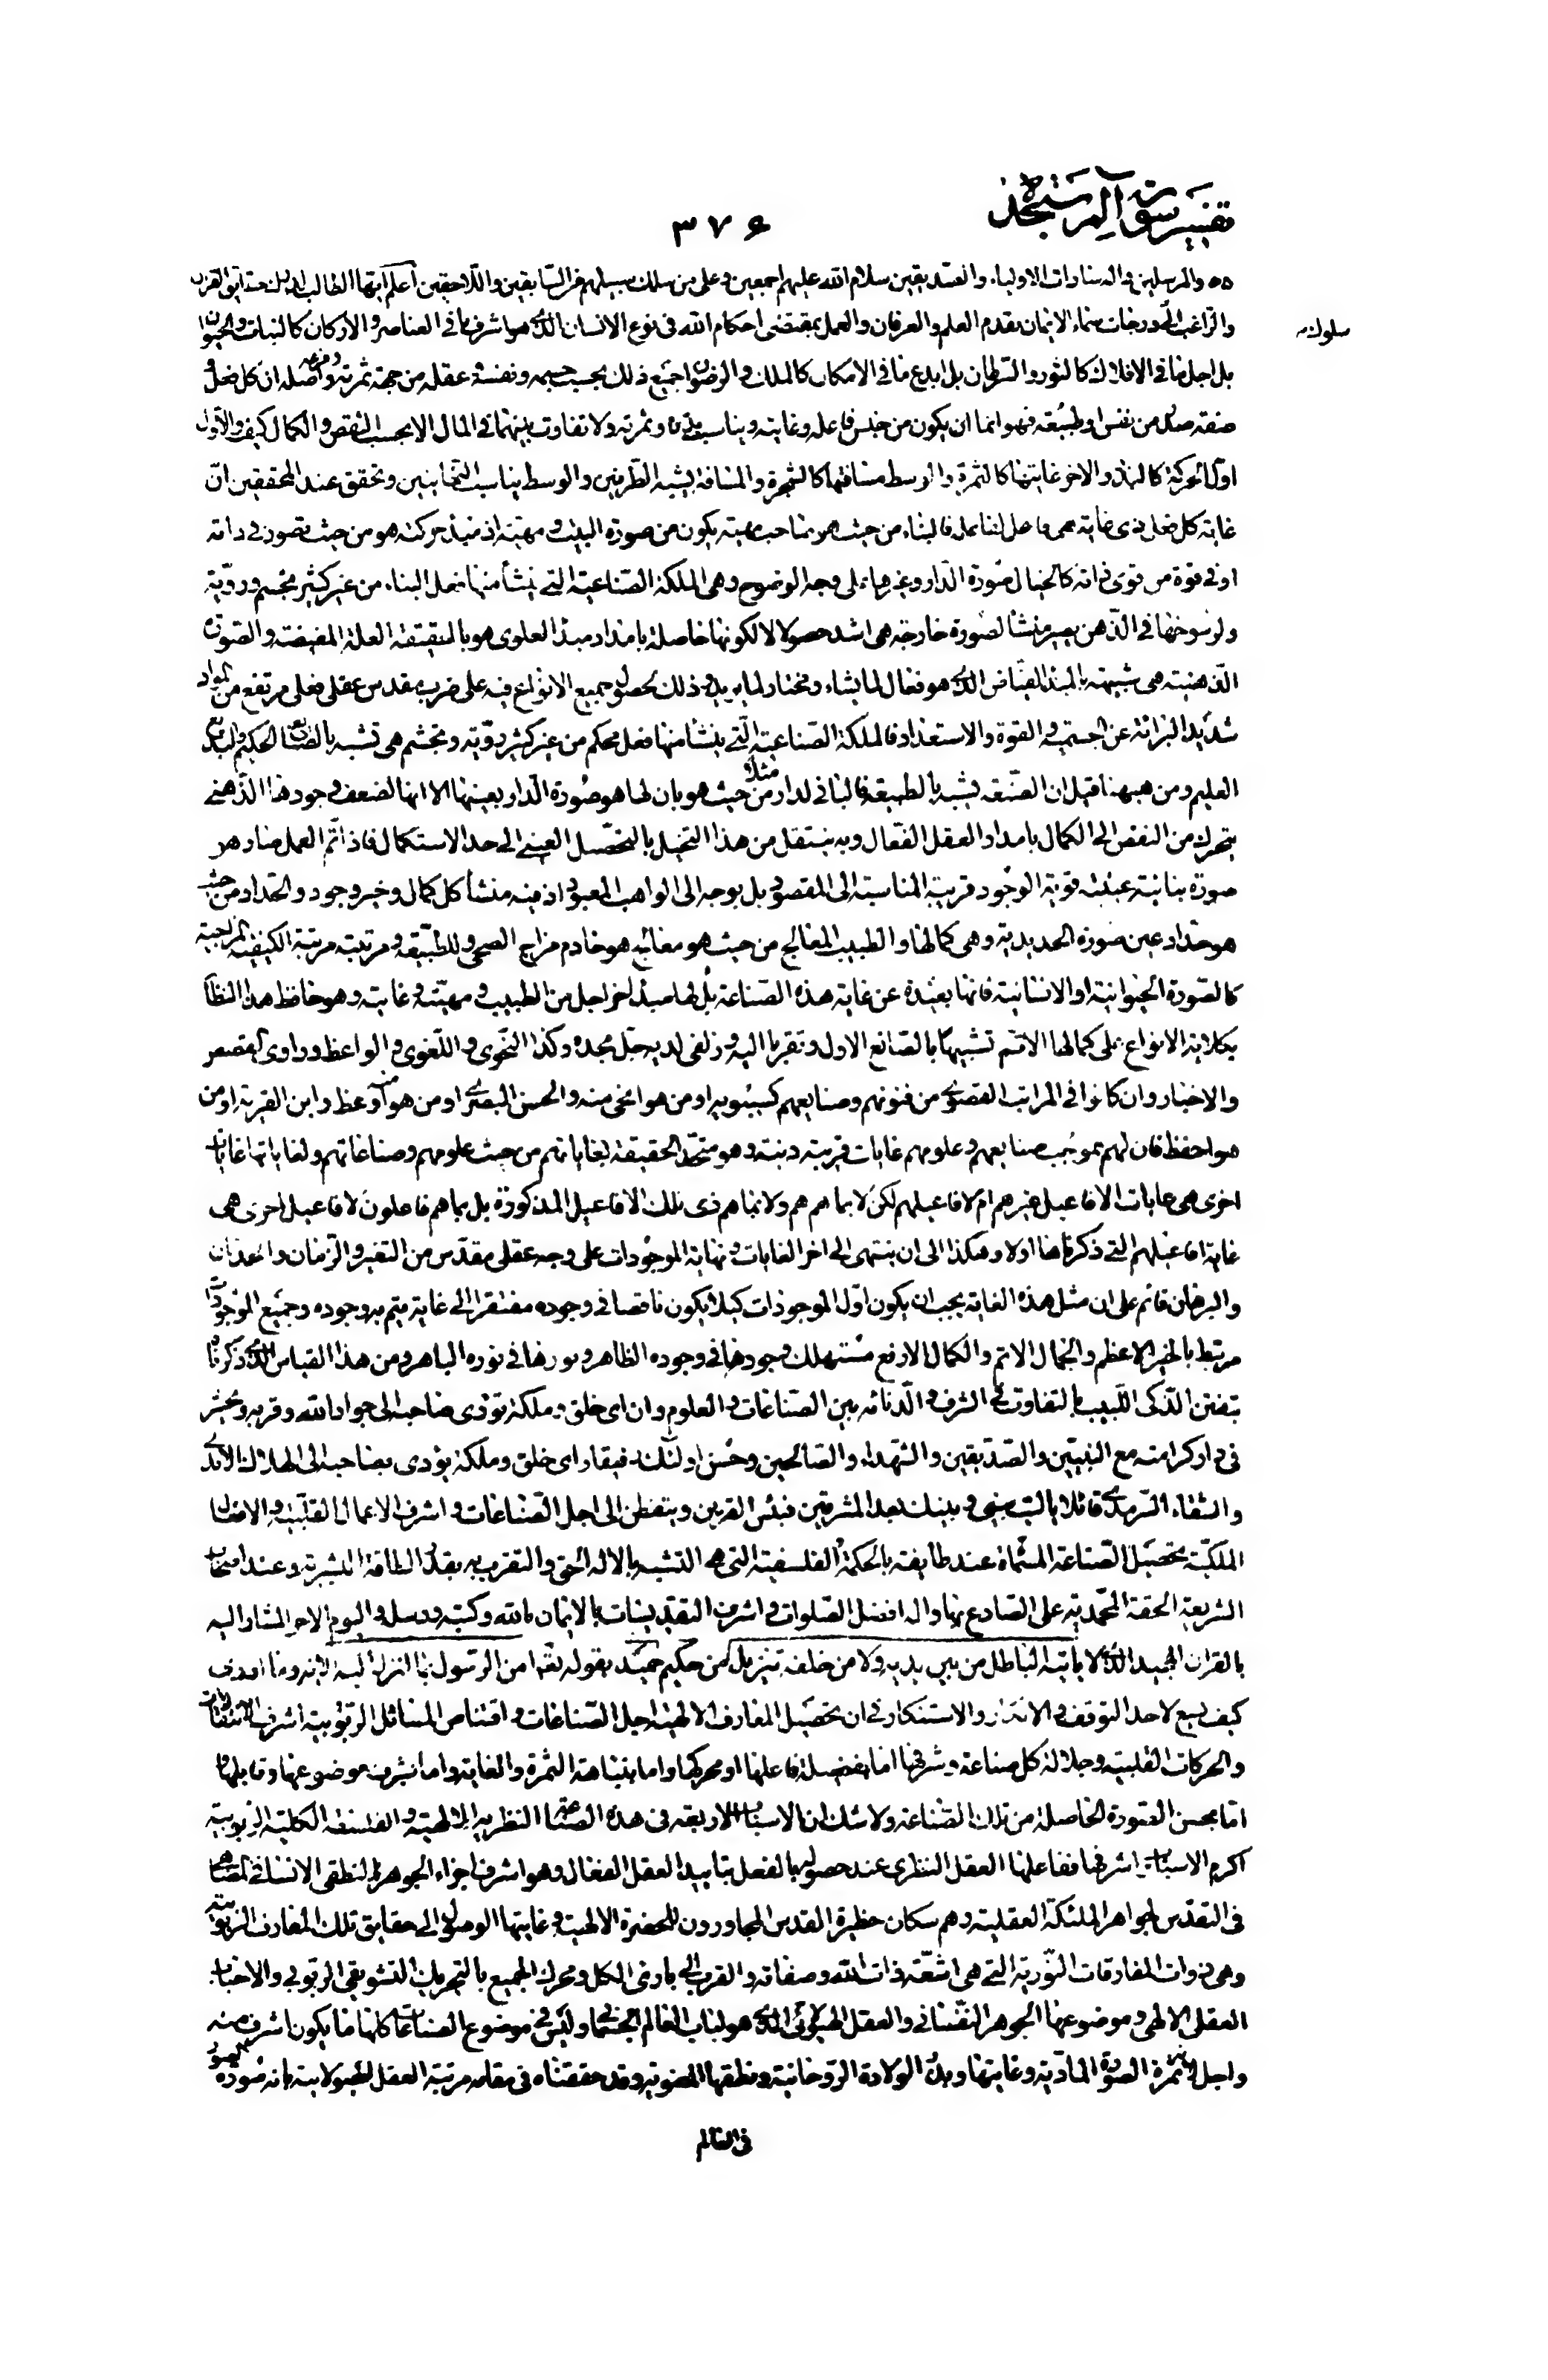 تفسير سورة الم سجده
٣٧۶
والمرسلين واله سادات الاولياء والصديقين سلام الله عليهم اجمعين وعلى من سلك سبيلهم من السابقين واللاحقين اعلم ايها الطالب
سلوك
والراغب الى درجات سماء الايمان بقدم العلم والعرفان والعمل بمقتضى احكام الله فى نوع الانسان الذى هو اشرف ما فى العناصر والاركان كالنبات والحيوان
بل اجل ما فى الافلاك كالثور والسرطان بل ابدع ما فى الامكان كالملك والرضوان جميع ذلك بحسب جسمه ونفسه وعقله من جهة ثمرته اصله ان كل فعل و
صنعة صدر من نفس او طبيعة فهو انما ان يكون من جنس فاعله وغايته ويناسب وثمرته ولا تفاوت بينهما فى المال الا بحسب النقص والكمال كيف والاول
اول الحركة كالبذر والاخر غايتها كالثمرة والوسط مسافتها كالشجرة والمسافة يشبه الطرفين والوسط يناسب الجانبين وتحقق عند المحققين ان
غاية كل فعل ذى غاية هى فاعل لفاعله فالبناء من حيث هو صاحب مهنته يكون من صورة البيت ومهنته اذ مبدء حركته هو من حيث تصور فى ذاته
او فى قوة من قوى ذاته كالخيال صورة الدار وغيرها على وجه الوضوح وهى الملكة الصناعية التى ينشأ منها فعل البناء من غير كثير تجشم وروية
ولرسوخها فى الذهن يصير منشأ لصورة خارجة هى اشد حصولا لا لكونها حاصلة بامداد مبدء العلوى هو بالحقيقة العلة المفيضة والصورة
الذهنية هى شبيهة بالمبدء الفياض الذى هو فعال لما يشاء ومختار لما يريد وذلك لحصول جميع الانواع فيه على ضرب مقدس عقلى فعلى مرتفع من المواد
شديد البرائة عن الجسمية والقوة والاستعداد فالملكة الصناعية التى ينشأ منها فعل محكم من غير كثير روية وتجشم هى تشبه بالصانع الحكيم والمبدع
العليم ومن هيهنا قيل ان الصنعة يشبه بالطبيعة فالبانى لدار مثلا من حيث هو بان لها هو صورة الدار بعينها الا انها لضعف وجودها الذهنى
يتحرك من النقص الى الكمال بامداد العقل الفعال وبه ينتقل من هذا التخيل بالتحصل العينى الى حد الاستكمال فاذا تم العمل صار هو
صورة بنائية عينية قوية الوجود قريبة المناسبة الى المقصود بل بوجه الى الواهب المعبود اذ منه منشأ كل كمال وخير وجود والحداد من حيث
هو حداد عين صورة الحديدية وهى كمالها والطبيب المعالج من حيث هو معالج هو خادم مزاج الصحى وللطبيعة ومرتبته مرتبة الكيفية المزاجية
كالصورة الحيوانية او الانسانية فانها بعيدة عن غاية هذه الصناعة بل لها مبدء اخر اجل من الطبيب ومهنته وغايته وهو حافظ هذا النظام
بكلائة الانواع على كمالها الاتم تشبها بالصانع الاول وتقربا اليه وزلفى لديه جل مجده وكذا النحوى واللغوى والواعظ وراوى القصص
والاخبار وان كانوا فى المراتب القصوى من فنونهم وصنايعهم كسيبويه او من هو انحى منه والحسن البصرى او من هو اوعظ منه وابن القرية او من
هو احفظ فان لهم بموجب صنايعهم وعلومهم غايات قريبة دنية وهو متحد الحقيقة بغاياتهم من حيث علومهم وصناعاتهم ولغاياتها غايات
اخرى هى غايات الافاعيل غيرهم او لافاعيلهم لكن لا بما هم هم ولا بما هم ذى تلك الافاعيل المذكورة بل بما هم فاعلون لافاعيل اخرى هى
غاية افاعيلهم التى ذكرناها اولا وهكذا الى ان ينتهى الى اخر الغايات ونهاية الموجودات على وجه عقلى مقدس من التغير والزمان والحدثان
والبرهان قائم على ان مثل هذه الغاية يجب ان يكون اول الموجودات كيلا يكون ناقصا فى وجوده مفتقرا الى غاية يتم به وجوده وجميع الموجودات
مرتبط بالخير الاعظم والجمال الاتم والكمال الارفع مستهلك وجودها فى وجوده الظاهر ونورها فى نوره الباهر ومن هذا القياس الذى ذكرنا
يتفطن الذكى اللبيب بالتفاوت فى الشرف والدنائه بين الصناعات والعلوم وان اى خلق وملكة تؤدى صاحبها الى جوار الله وقربه ويحشر
فى دار كرامته مع النبيين والصديقين والشهداء والصالحين وحسن اولئك رفيقا واى خلق وملكة يؤدى بصاحبها الى الهلاك الابدى
والشقاء السرمدى قائلا يا ليت بينى وبينك بعد المشرقين فبئس القرين ويتفطن الى اجل الصناعات واشرف الاعمال القلبية والافعال
الملكية تحصيل الصناعة المسماة عند طايفة بالحكمة الفلسفية التى هى التشبه بالاله الحق والتقرب به بقدر الطاقة البشرية وعند اصحاب
الشريعة الحقة المحمدية على الصادع بها واله افضل الصلوات واشرف التقديسات بالايمان بالله وكتبه ورسله واليوم الاخر المشار اليه
بالقران المجيد الذى لا ياتيه الباطل من بين يديه ولا من خلفه تنزيل من حكيم حميد بقوله تعالى امن الرسول بما انزل اليه الاية وما ادرى
كيف يسع لاحد التوقف والانكار والاستنكار فى ان تحصيل المعارف الالهية اجل الصناعات واقتناص المسائل الربوبية اشرف الانتقالات
والحركات القلبية وجلالة كل صناعة وشرفها اما بفضيلة فاعلها او محركها واما بنباهة الثمرة والغاية واما بشرف موضوعها وقابلها
اما بحسن الصورة الحاصلة من تلك الصناعة ولا شك ان الاسباب الاربعة فى هذه الصناعة النظرية الالهية والفلسفة الكلية الربوبية
اكرم الاسباب اشرفها ففاعلها العقل النظرى عند حصوله بالفعل بتاييد العقل الفعال وهو اشرف اجزاء الجوهر النطقى الانسانى لمضاهاته
فى التقدس لجواهر الملئكة العقلية وهم سكان حظيرة القدس المجاورون للحضرة الالهية وغايتها الوصول الى حقايق تلك المعارف الربوبية
وهى ذوات المفارقات النورية التى هى اشعة ذات الله وصفاته والقرب الى بارى الكل ومحرك الجميع بالتحريك التشويقى الربوبى والاخبات
العقلى الالهى وموضوعها الجوهر النفسانى والعقل الهيولانى الذى هو لباب العالم الجسمانى وليس فى موضوع الصناعات كلها ما يكون اشرف منه
واجل لانه ثمرة الصورة المادية وغايتها وبدو الولادة الروحانية ونطقها المعنوية وقد حققناه فى مقامه مرتبة العقل الهيولانية بانه صورة الصور
فى العالم